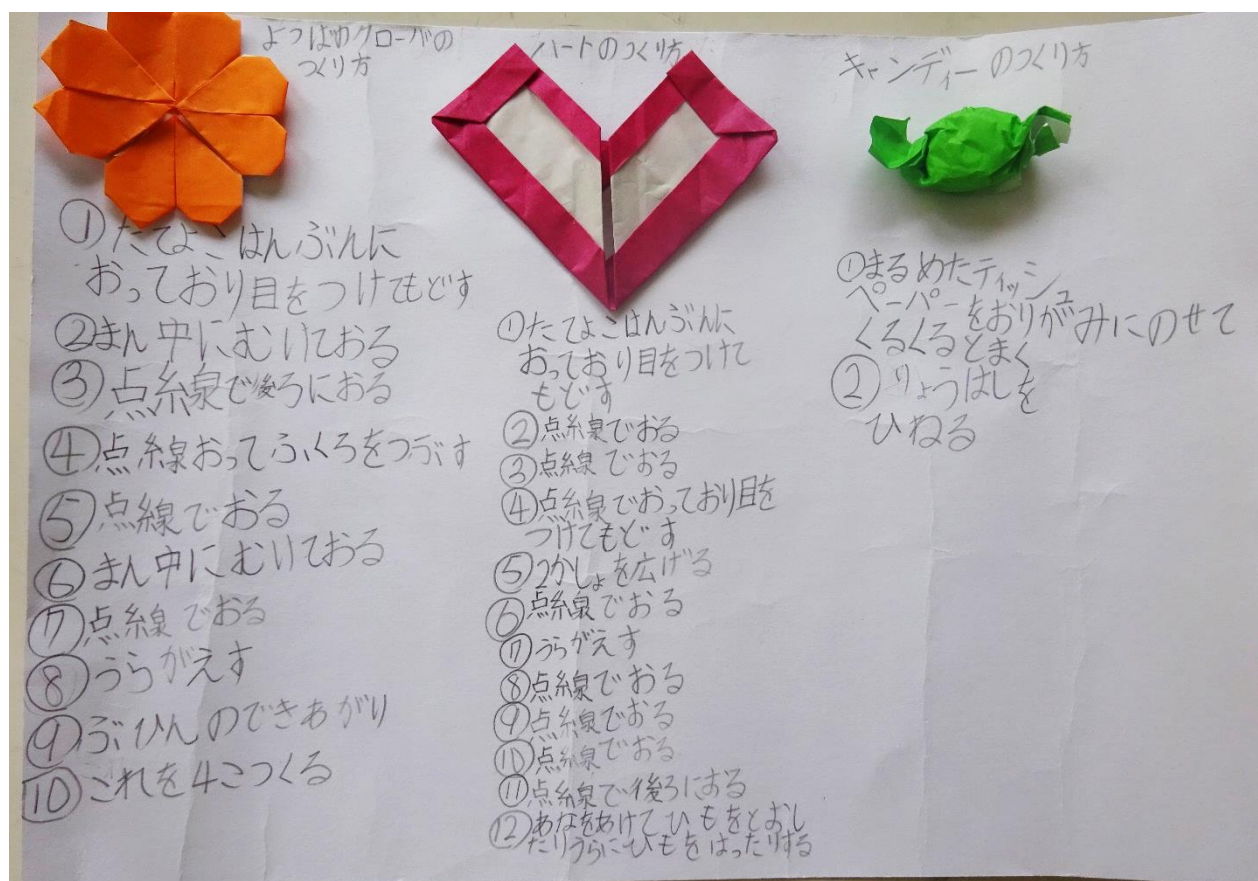 よつばのクローバの
つくり方
①たてよこはんぶんに
おっており目をつけてもどす
②まん中にむけておる
③点線で後ろにおる
④点線おってふくろをつぶす
⑤点線でおる
⑥まん中にむいておる
⑦点線でおる
⑧うらがえす
⑨ぶひんのできあがり
⑩これを4こつくる
ハートのつくり方
①たてよこはんぶんに
おっており目をつけて
もどす
②点線でおる
③点線でおる
④点線でおっており目を
つけてもどす
⑤2かしょを広げる
⑥点線でおる
⑦うらがえす
⑧点線でおる
⑨点線でおる
⑩点線でおる
⑪点線で後ろにおる
⑫あなをあけてひもをとおし
たりうらにひもをはったりする
キャンディーのつくり方
①まるめたティッシュ
ペーパーをおりがみにのせて
くるくるとまく
②りょうはしを
ひねる